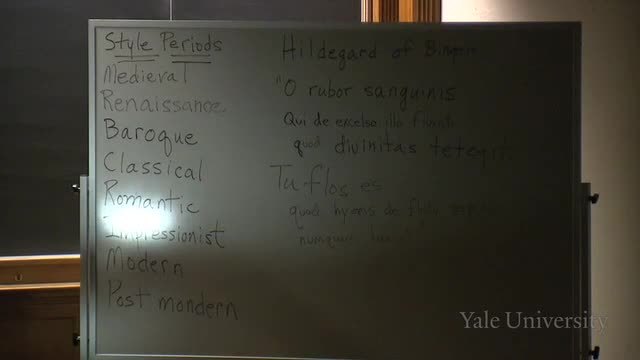 Style Periods
Medieval
Renaissance
Baroque
Classical
Romantic
Impressionist
Modern
Post mondern
Hildegard of
"O rubor sanguinis
Qui de excelso illo
quod divinitas tetegit
Tu flos es
quod hyems de
numquam
Yale University